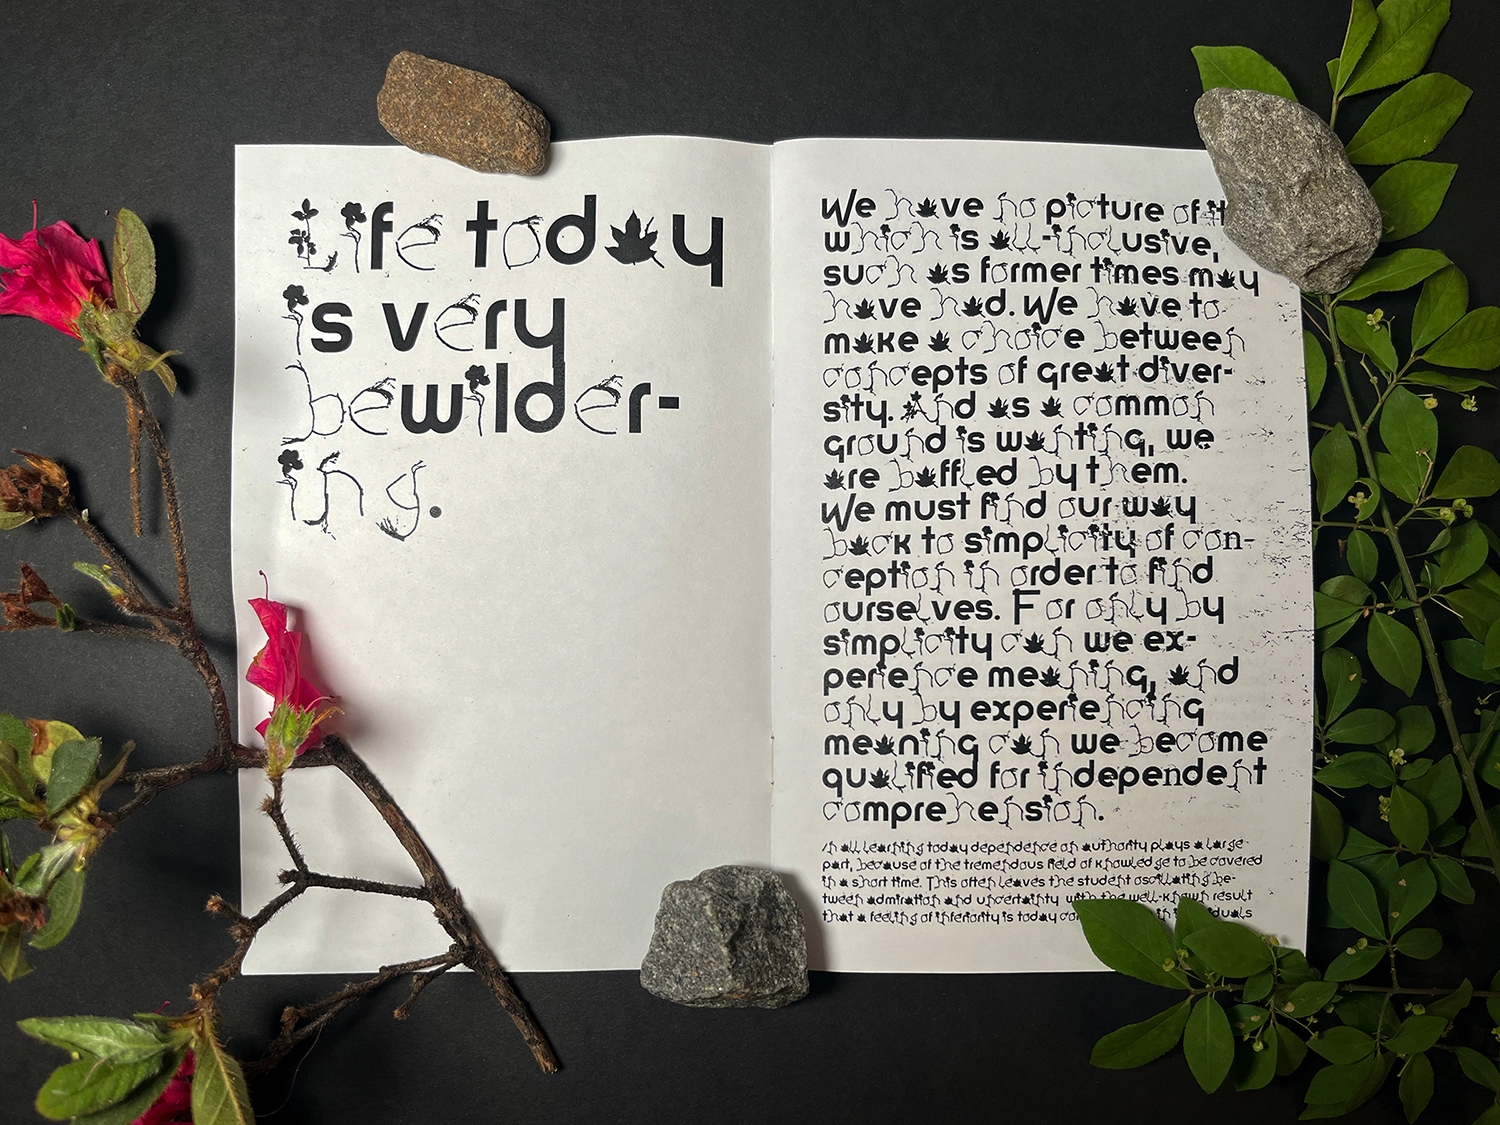 Life today
is very
bewilder-
ing.
We have no picture of it
which is all-inclusive,
such as former times may
have had. We have to
make a choice between
concepts of great diver-
sity. And as a common
ground is wanting, we
are baffled by them.
We must find our way
back to simplicity of con-
ception in order to find
ourselves. For only by
simplicity can we ex-
perience meaning, and
only by experiencing
meaning can we become
qualified for independent
comprehension.
In all learning today dependence on authority plays a large
part, because of the tremendous field of knowledge to be covered
in a short time. This often leaves the student oscillating be-
tween admiration and uncertainty with the well-known result
that a feeling of inferiority is today in